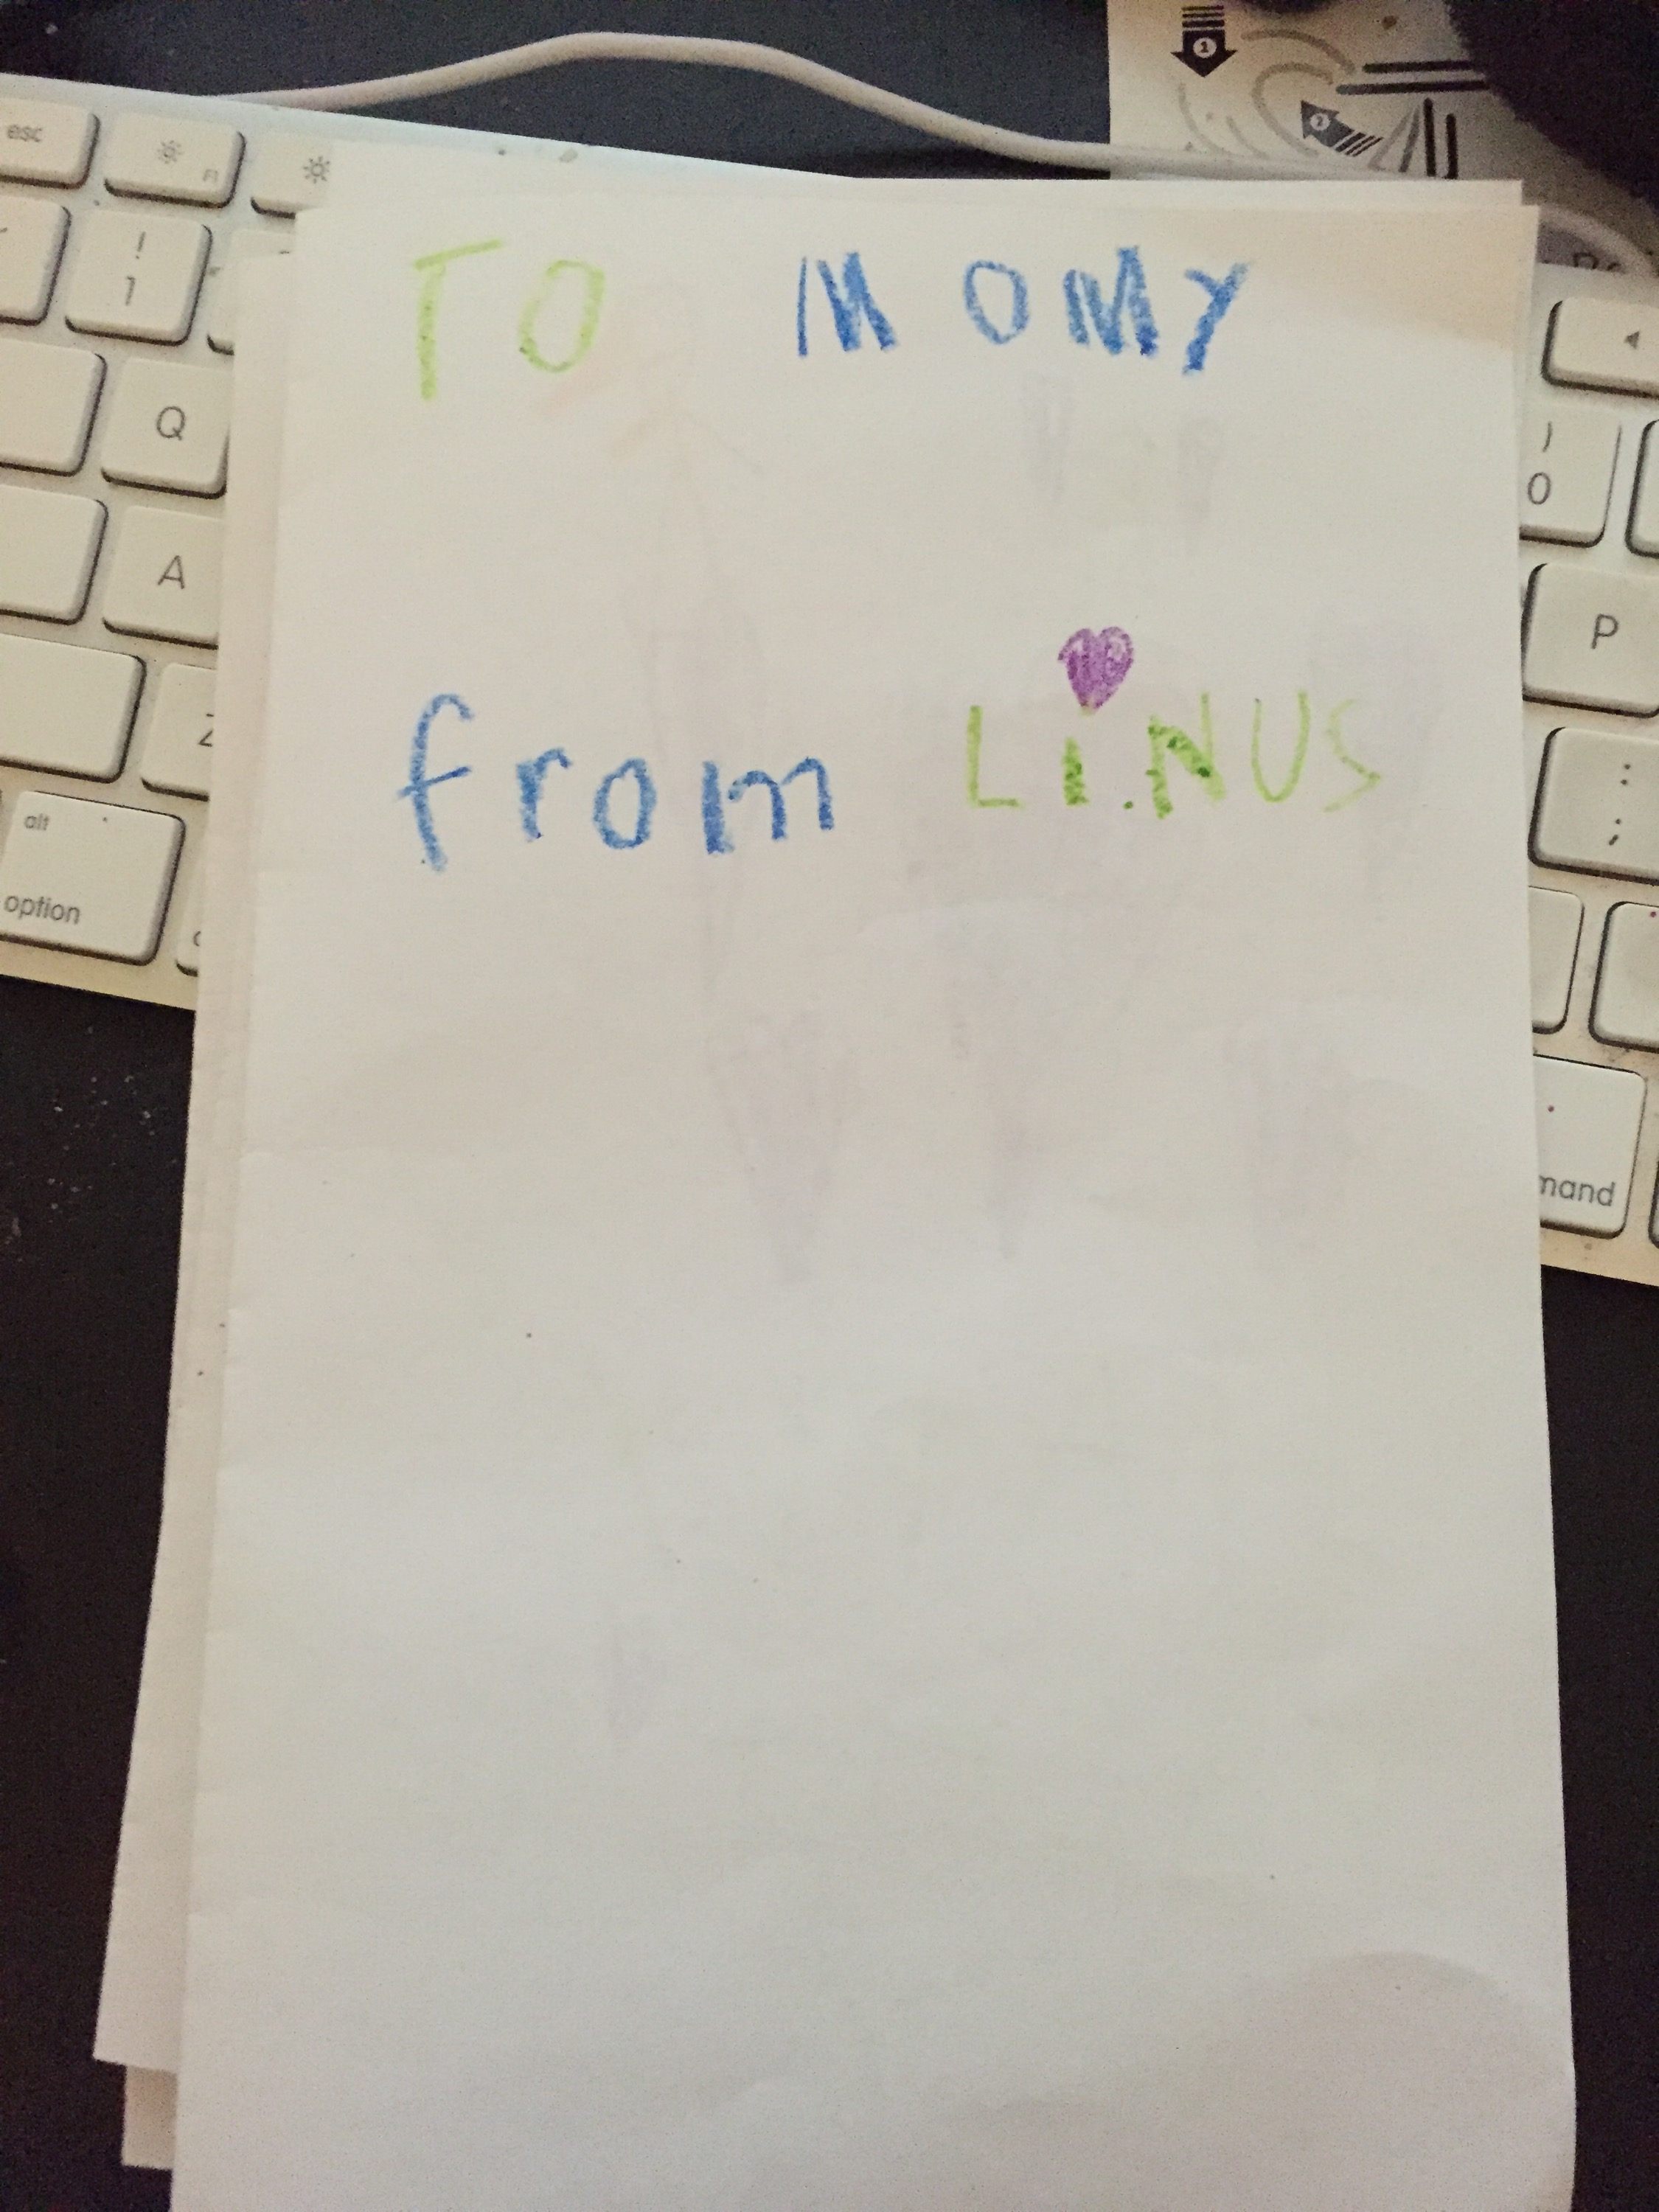 TO MOMY
from LiNUS
esc
F1
!
1
Q
A
Z
alt
option
)
0
P
:
;
mand
1
2